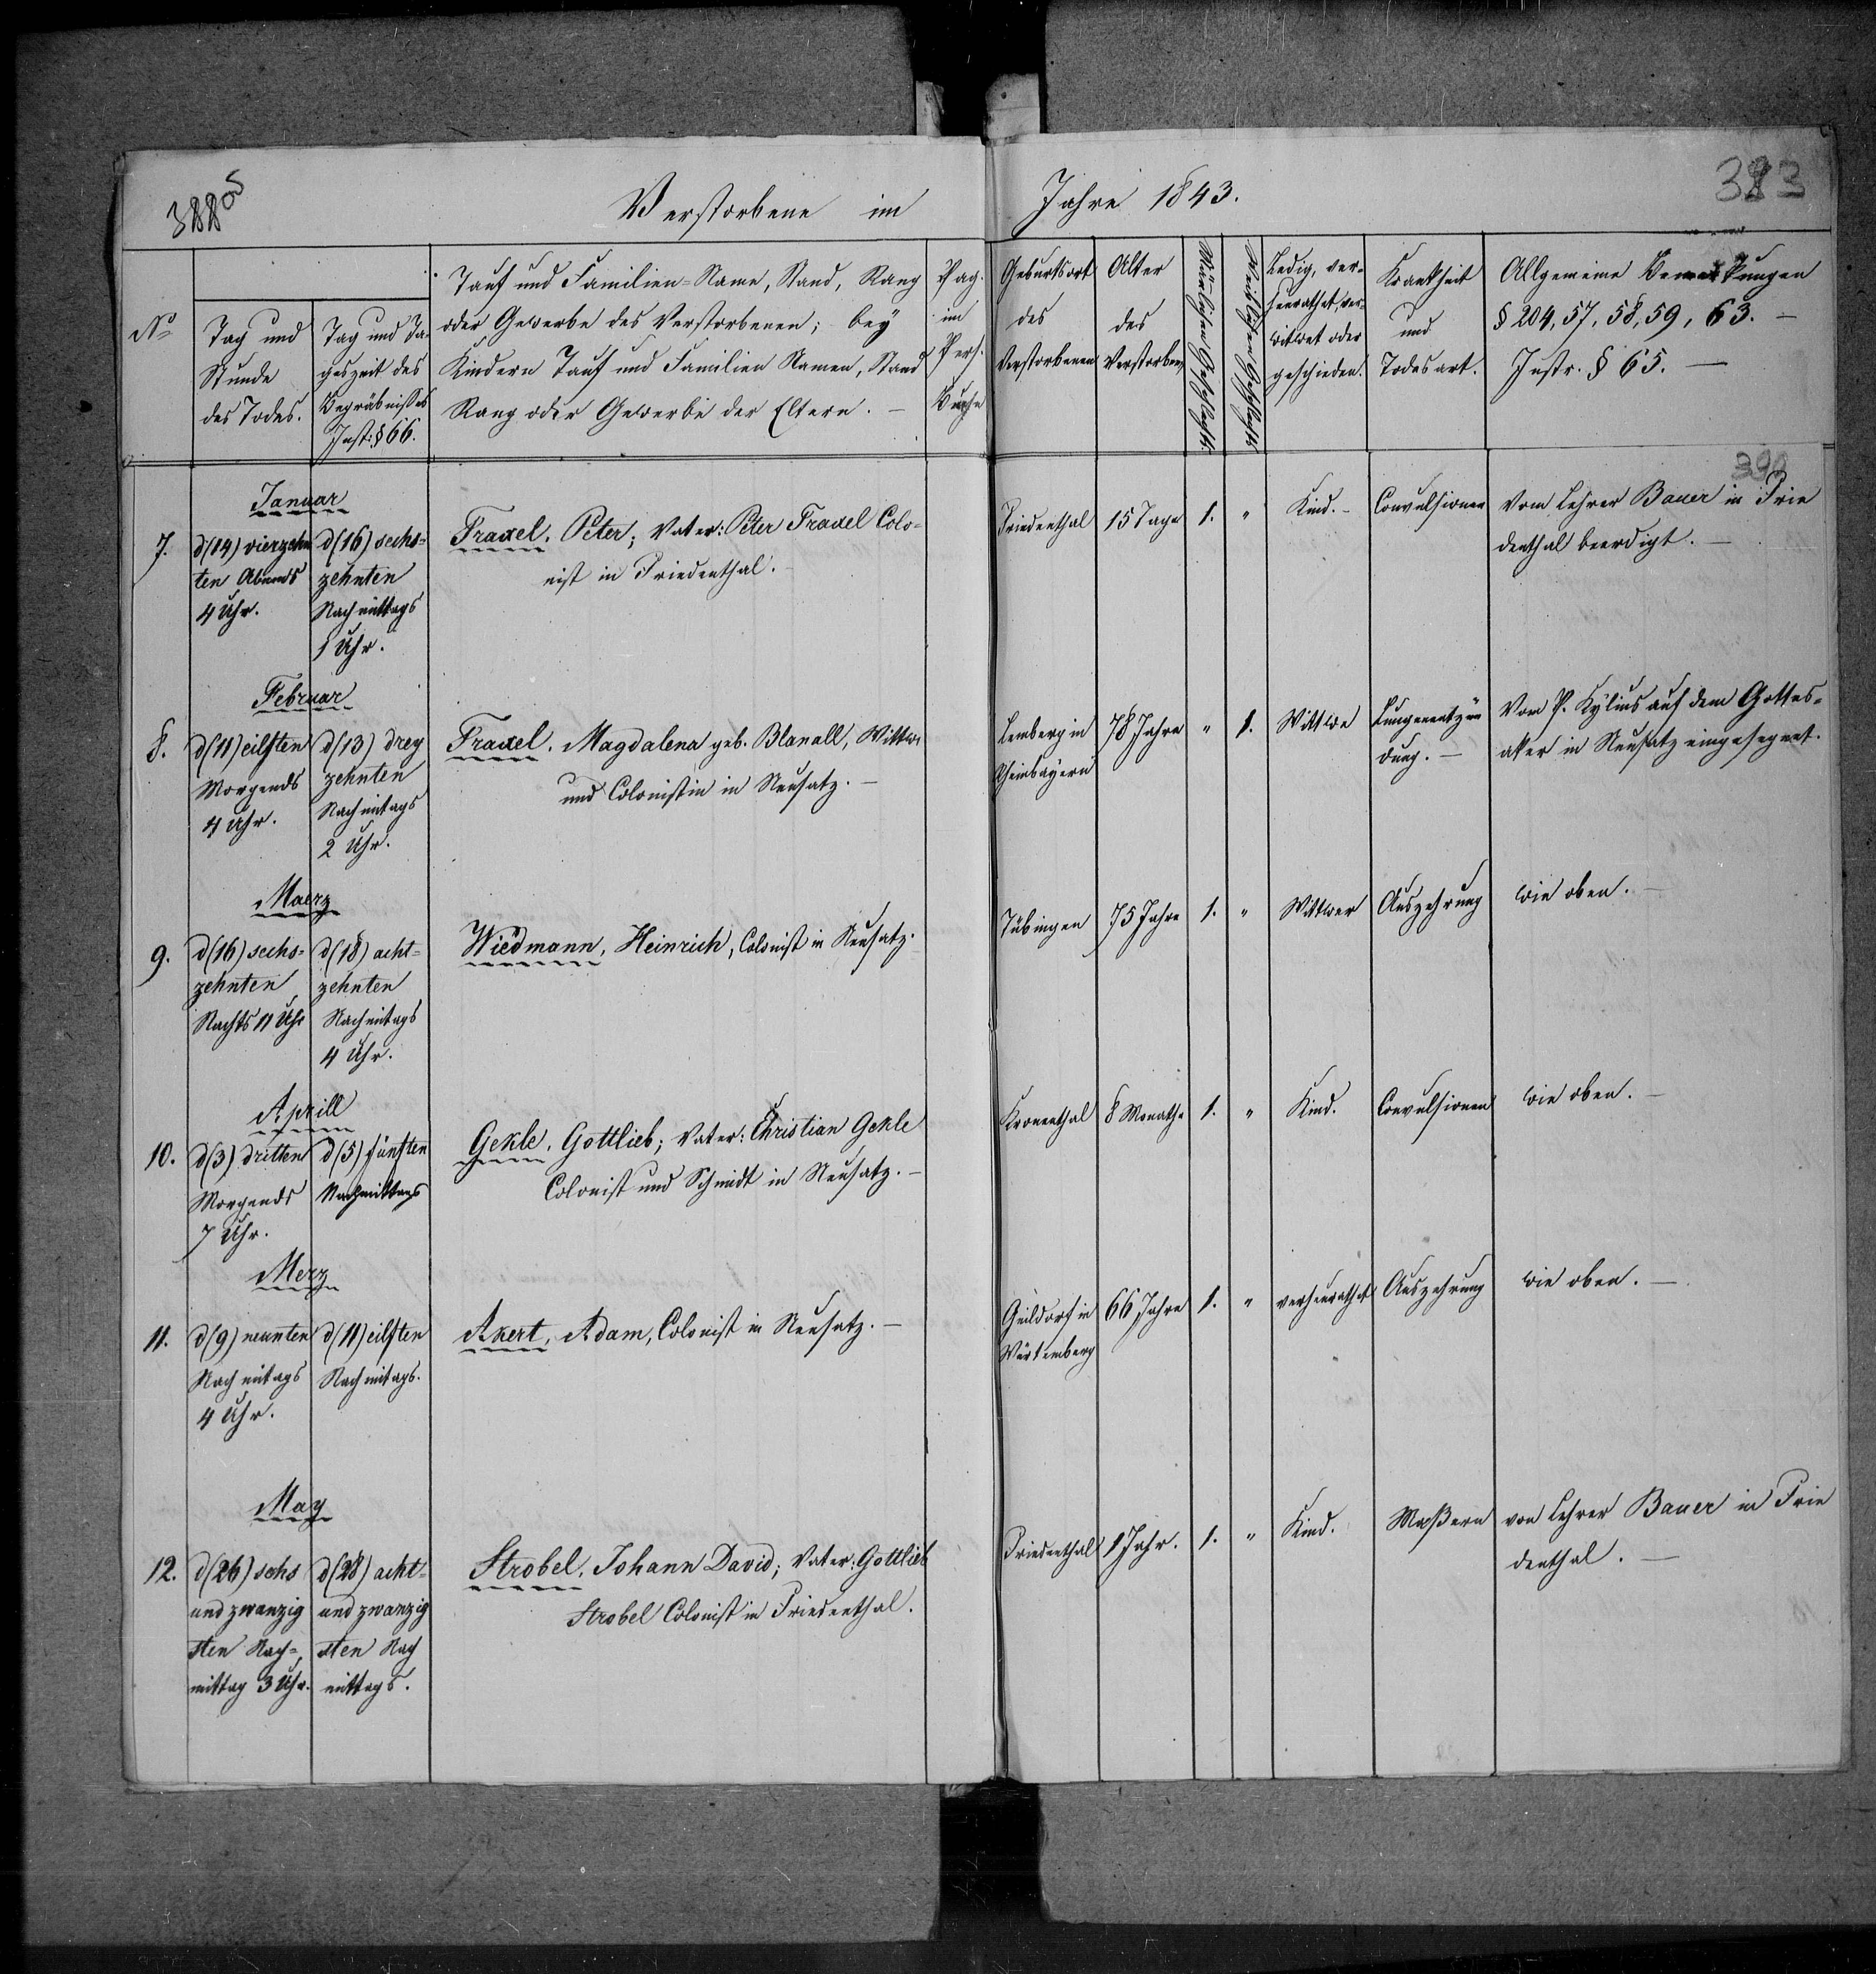 Verstorbene im Jahre 1843.
№
Tag und
Stunde
des Todes.
Tag und Ta-
geszeit des
Begräbnißes
Inst: § 66.
Tauf und Familien-Name, Stand, Rang
oder Gewerbe des Verstorbenen; bey
Kindern Tauf und Familien Namen, Stand
Rang oder Gewerbe der Eltern. —
Pag.
im
Pers.
Buche
Geburtsort
des
Verstorbenen
Alter
des
Verstorbenen
Männlichen Geschlechts.
Weiblichen Geschlechts.
Ledig, ver-
heurathet, ver-
witwet oder
geschieden.
Krankheit
und
Todesart.
Allgemeine Bemerkungen
§ 204, 57, 58, 59, 63. —
Instr. § 65. —
Januar
7.
d (14) vierzehn
ten Abends
4 Uhr.
d (16) sechs-
zehnten
Nachmittags
1 Uhr.
Traxel, Peter; Vater: Peter Traxel Colo-
nist in Friedenthal.
Friedenthal
15 Tage
1.
"
Kind. -
Convulsionen
Vom Lehrer Bauer in Frie
denthal beerdigt. —
Februar
8.
d (11) eilften
Morgends
4 Uhr.
d (13) drey
zehnten
Nachmitags
2 Uhr.
Traxel, Magdalena geb. Blanall, Wittwe
und Colonistin in Neusatz. —
Lemberg in
Rheinbayern
78 Jahre
"
1.
Wittwe
Lungenentzün
dung. —
Vom P. Kylius auf dem Gottes-
aker in Neusatz eingesegnet.
Maerz
9.
d (16) sechs-
zehnten
Nachts 11 Uhr
d (18) acht-
zehnten
Nachmitags
4 Uhr.
Wiedmann, Heinrich, Colonist in Neusatz.
Tübingen
75 Jahre
1.
"
Wittwer
Auszehrung
wie oben. —
Aprill
10.
d (3) dritten
Morgends
7 Uhr.
d (5) fünften
Nachmittags
Gekle, Gottlieb; Vater: Christian Gekle
Colonist und Schmidt in Neusatz. —
Kronenthal
8 Monathe
1.
"
Kind.
Convulsionen
wie oben. —
Merz
11.
d (9) neunten
Nachmitags
4 Uhr.
d (11) eilften
Nachmitags.
Akert, Adam, Colonist in Neusatz. —
Gaildorf in
Würtemberg
66 Jahre
1.
"
verheurathet
Auszehrung
wie oben. —
May
12.
d (26) sechs
und zwanzig
sten Nach-
mittag 3 Uhr.
d (28) acht-
und zwanzig
sten Nach
mittags.
Strobel, Johann David; Vater: Gottlieb
Strobel Colonist in Friedenthal.
Friedenthal
1 Jahr.
1.
"
Kind.
Maßern
von Lehrer Bauer in Frie
denthal. —